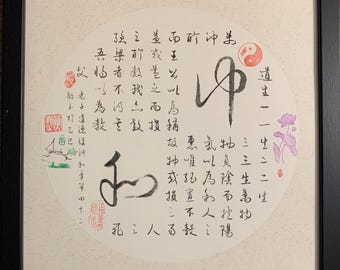 道生一一生二二生
三三生萬物
萬物負陰而抱陽
沖氣以為和人之
所惡唯孤寡不穀
而王公以為稱故物或損之
益或益之而損人
之所教我亦教之
強梁者不得其死
吾將以為教
父
老子道德經沖和章第四十二
沖
和